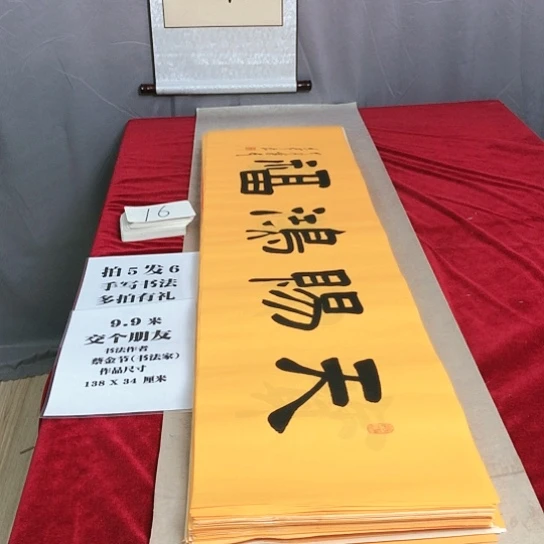 天賜鴻福
16
拍5发6
手写书法
多拍有礼
9.9米
交个朋友
书法作者
蔡金节(书法家)
作品尺寸
138X34厘米